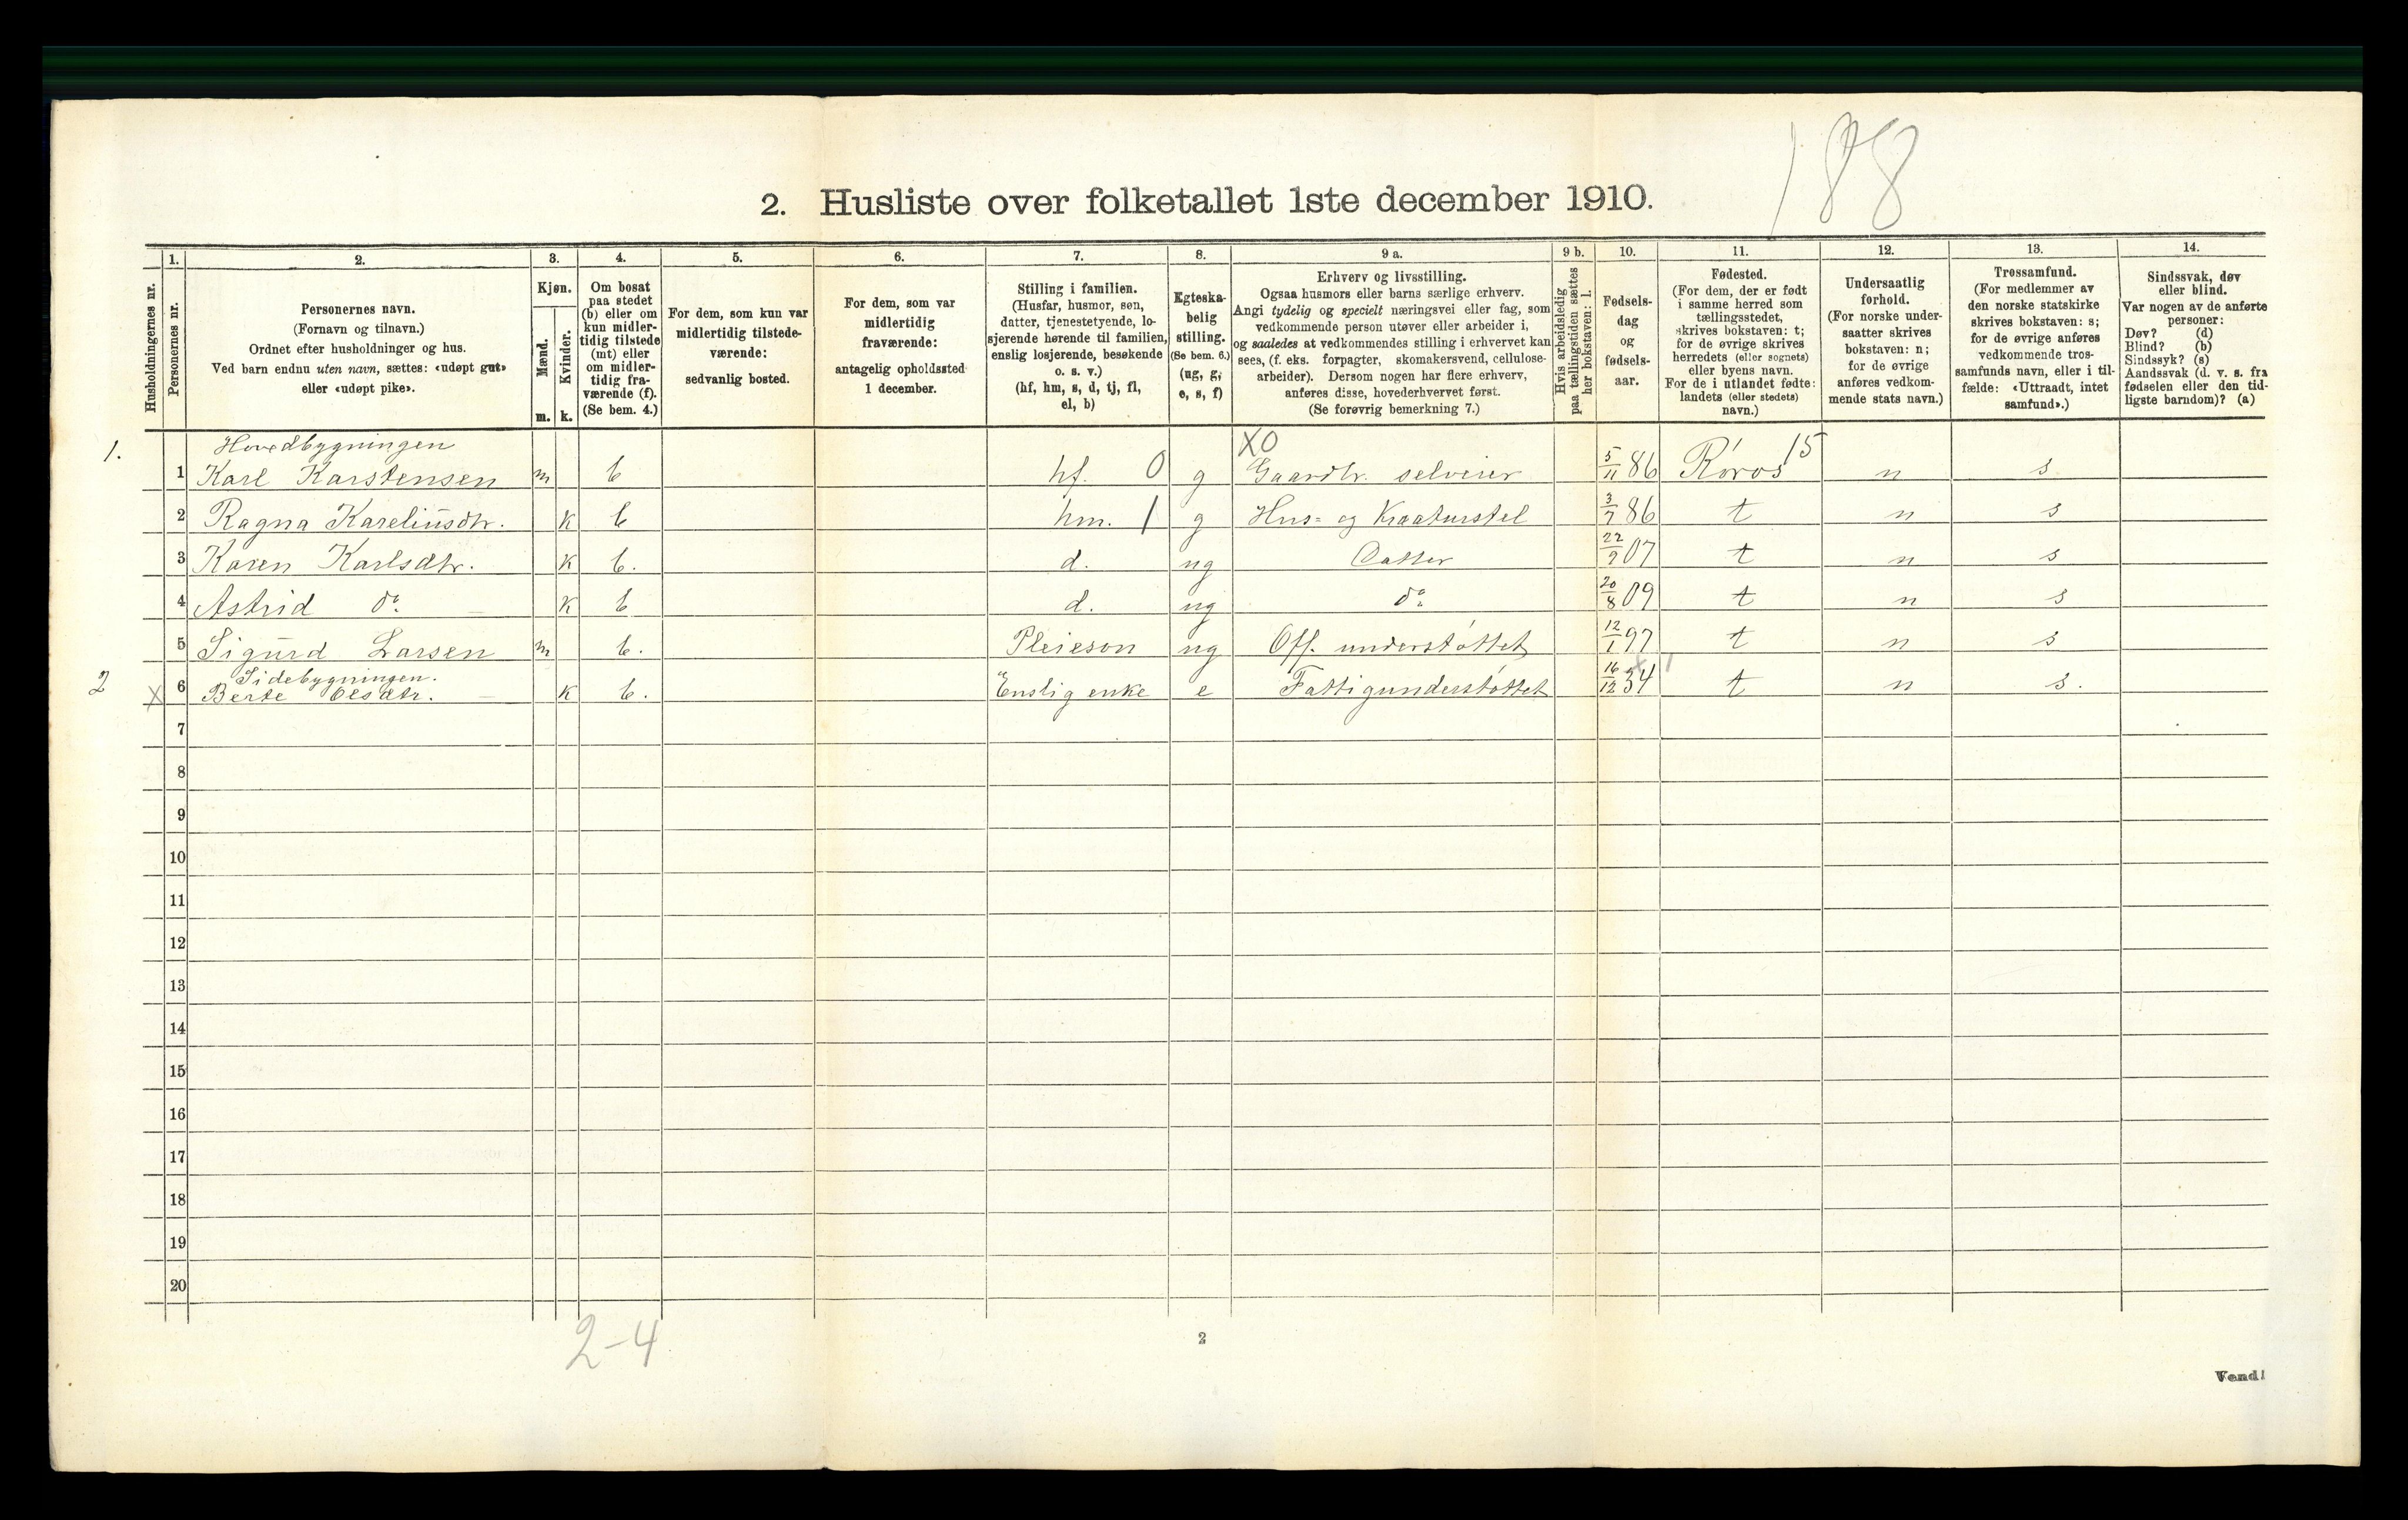 188
2. Husliste over folketallet 1ste december 1910.
Husholdningernes nr.
1.
Personernes nr.
2.
Personernes navn.
(Fornavn og tilnavn.)
Ordnet efter husholdninger og hus.
Ved barn endnu uten navn, sættes: «udøpt gut»
eller «udøpt pike».
3.
Kjøn.
Mænd.
m.
Kvinder.
k.
4.
Om bosat
paa stedet
(b) eller om
kun midler-
tidig tilstede
(mt) eller
om midler-
tidig fra-
værende (f).
(Se bem. 4.)
5.
For dem, som kun var
midlertidig tilstede-
værende:
sedvanlig bosted.
6.
For dem, som var
midlertidig
fraværende:
antagelig opholdssted
1 december.
7.
Stilling i familien.
(Husfar, husmor, søn,
datter, tjenestetyende, lo-
sjerende hørende til familien,
enslig losjerende, besøkende
o. s. v.)
(hf, hm, s, d, tj, fl,
el, b)
8.
Egteska-
belig
stilling.
(Se bem. 6.)
(ug, g,
e, s, f)
9 a.
Erhverv og livsstilling.
Ogsaa husmors eller barns særlige erhverv.
Angi tydelig og specielt næringsvei eller fag, som
vedkommende person utøver eller arbeider i,
og saaledes at vedkommendes stilling i erhvervet kan
sees, (f. eks. forpagter, skomakersvend, cellulose-
arbeider). Dersom nogen har flere erhverv,
anføres disse, hovederhvervet først.
(Se forøvrig bemerkning 7.)
9 b.
Hvis arbeidsledig
paa tællingstiden sættes
her bokstaven: l.
10.
Fødsels-
dag
og
fødsels-
aar.
11.
Fødested.
(For dem, der er født
i samme herred som
tællingsstedet,
skrives bokstaven: t;
for de øvrige skrives
herredets (eller sognets)
eller byens navn.
For de i utlandet fødte:
landets (eller stedets)
navn.)
12.
Undersaatlig
forhold.
(For norske under-
saatter skrives
bokstaven: n;
for de øvrige
anføres vedkom-
mende stats navn.)
13.
Trossamfund.
(For medlemmer av
den norske statskirke
skrives bokstaven: s;
for de øvrige anføres
vedkommende tros-
samfunds navn, eller i til-
fælde: «Uttraadt, intet
samfund».)
14.
Sindssvak, døv
eller blind.
Var nogen av de anførte
personer:
Døv? (d)
Blind? (b)
Sindssyk? (s)
Aandssvak (d. v. s. fra
fødselen eller den tid-
ligste barndom)? (a)
Hovedbygningen X0 15
1. 1 Karl Karstensen m b hf. 0 g Gaardbr. selveier 5/11 86 Røros n s
2 Ragna Kareliusdtr. k b hm. 1 g Hus- og Kreaturstel 3/7 86 t n s
3 Karen Karlsdtr. k b. d. ug Datter 22/9 07 t n s
4 Astrid do. k b d. ug do 20/8 09 t n s
5 Sigurd Larsen m b. Pleieson ug Off. understøttet 12/1 97 t n s
Sidebygningen.
2 X 6 Berte Olsdtr. k b. Enslig enke e Fattigunderstøttet 16/12 34 t n s.
7
8
9
10
11
12
13
14
15
16
17
18
19
20
2-4
2
Vend!